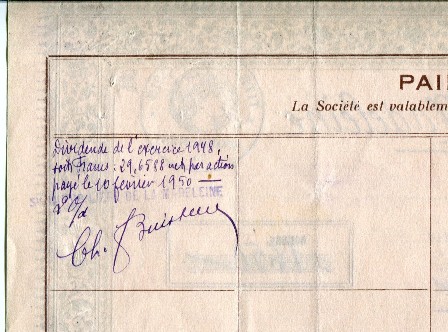 PAI
La Société est valablem
Dividende de l'exercice 1948,
soit Francs : 29,6588 net par action
payé le 10 février 1950 —
DE LA MADELEINE
Ch. Buisson